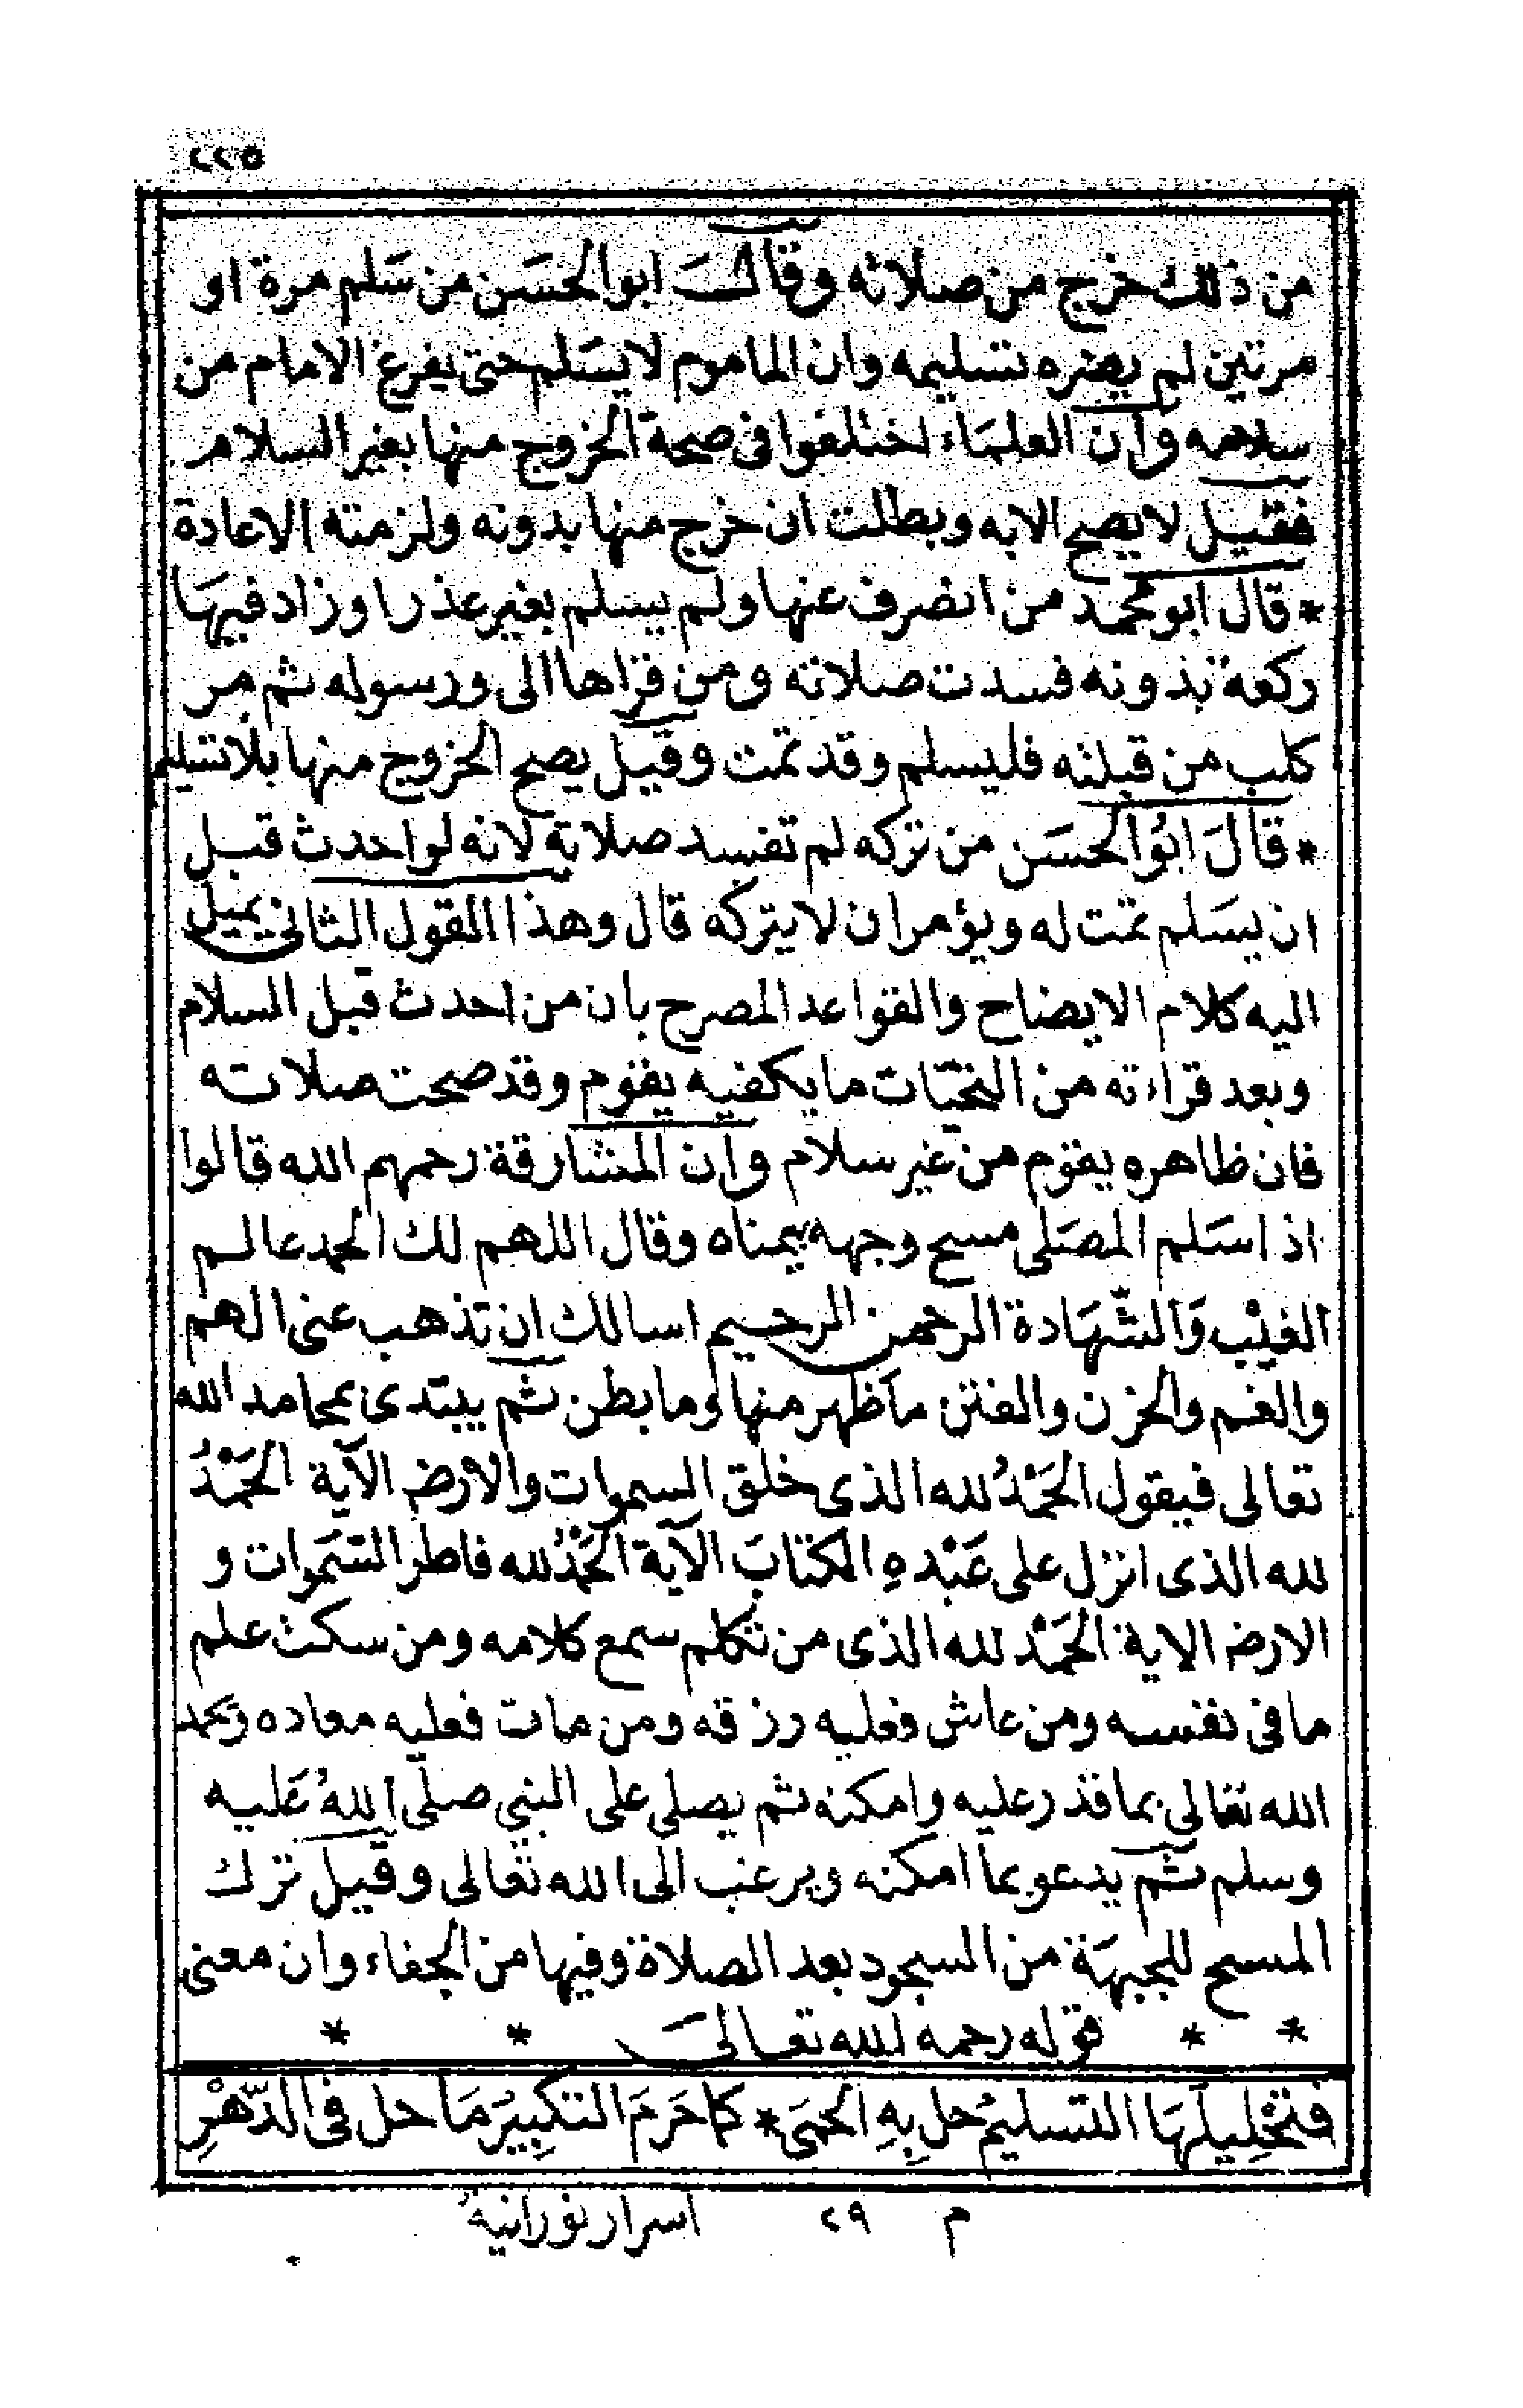 ٢٢٥
من ذلك خرج من صلاته وقال ابوالحسَن من سَلم مرة او
مرتين لم يضره تسليمه وان الماموم لا يسَلم حتى يفرغ الامام من
سلامه وان العلمَاء اختلفوا فى صحة الخروج منها بغير السلام
فقيل لا يصح الا به وبطلت ان خرج منها بدونه ولزمته الاعادة
* قال ابو محمد من انصرف عنها ولم يسلم بغير عذر او زاد فيهَا
ركعة بدونه فسدت صلاته ومن قراها الى ورسوله ثم مر
كلب من قبلته فليسلم وقد تمت وقيل يصح الخروج منها بلا تسليم
* قالَ ابُوالحسَن من تركه لم تفسد صلاته لانه لو احدث قبل
ان يسَلم تمت له ويؤمر ان لا يتركه قال وهذا القول الثانى يميل
اليه كلام الايضاح والقواعد المصرح بان من احدث قبل السلام
وبعد قراءته من التحيّات ما يكفيه يقوم وقد صحت صلاته
فان ظاهره يقوم من غير سلام وان المشارقة رحمهم الله قالوا
اذ اسَلم المصَلى مسح وجهه بيمناه وقال اللهم لك الحمد عالم
الغيْب وَالشّهَادة الرحمن الرحيم اسالك ان تذهب عنى الهم
والغم والحزن والفتن ما ظهر منها وما بطن ثم يبتدى بمحامد الله
تعالى فيقول الحَمْدُ لله الذى خلق السموات والارض الآية الحَمْدُ
لله الذى انزل على عَبْدهِ الكتابَ الآية الحَمْدُ لله فاطر السّمَوات و
الارض الاية الحَمْد لله الذى من تكلم سمع كلامه ومن سكت علم
ما فى نفسه ومن عاش فعليه رزقه ومن مات فعليه معاده ويحمد
الله تعالى بما قدر عليه وامكنه ثم يصلى على النبي صلى اللهُ عَليه
وسلم ثم يدعو بما امكنه ويرغب الى الله تعالى وقيل ترك
المسح للجبهَة من السجود بعد الصلاة وفيها من الجفاء وان معنى
* * قوله رحمه الله تعالىَ * *
فتحْلِيلُهَا التسليمُ حل بِهِ الحمَى * كما حَرمَ التكبِيرَ مَا حل فى الدّهْرِ
م ٢٩ اسرار نورانية